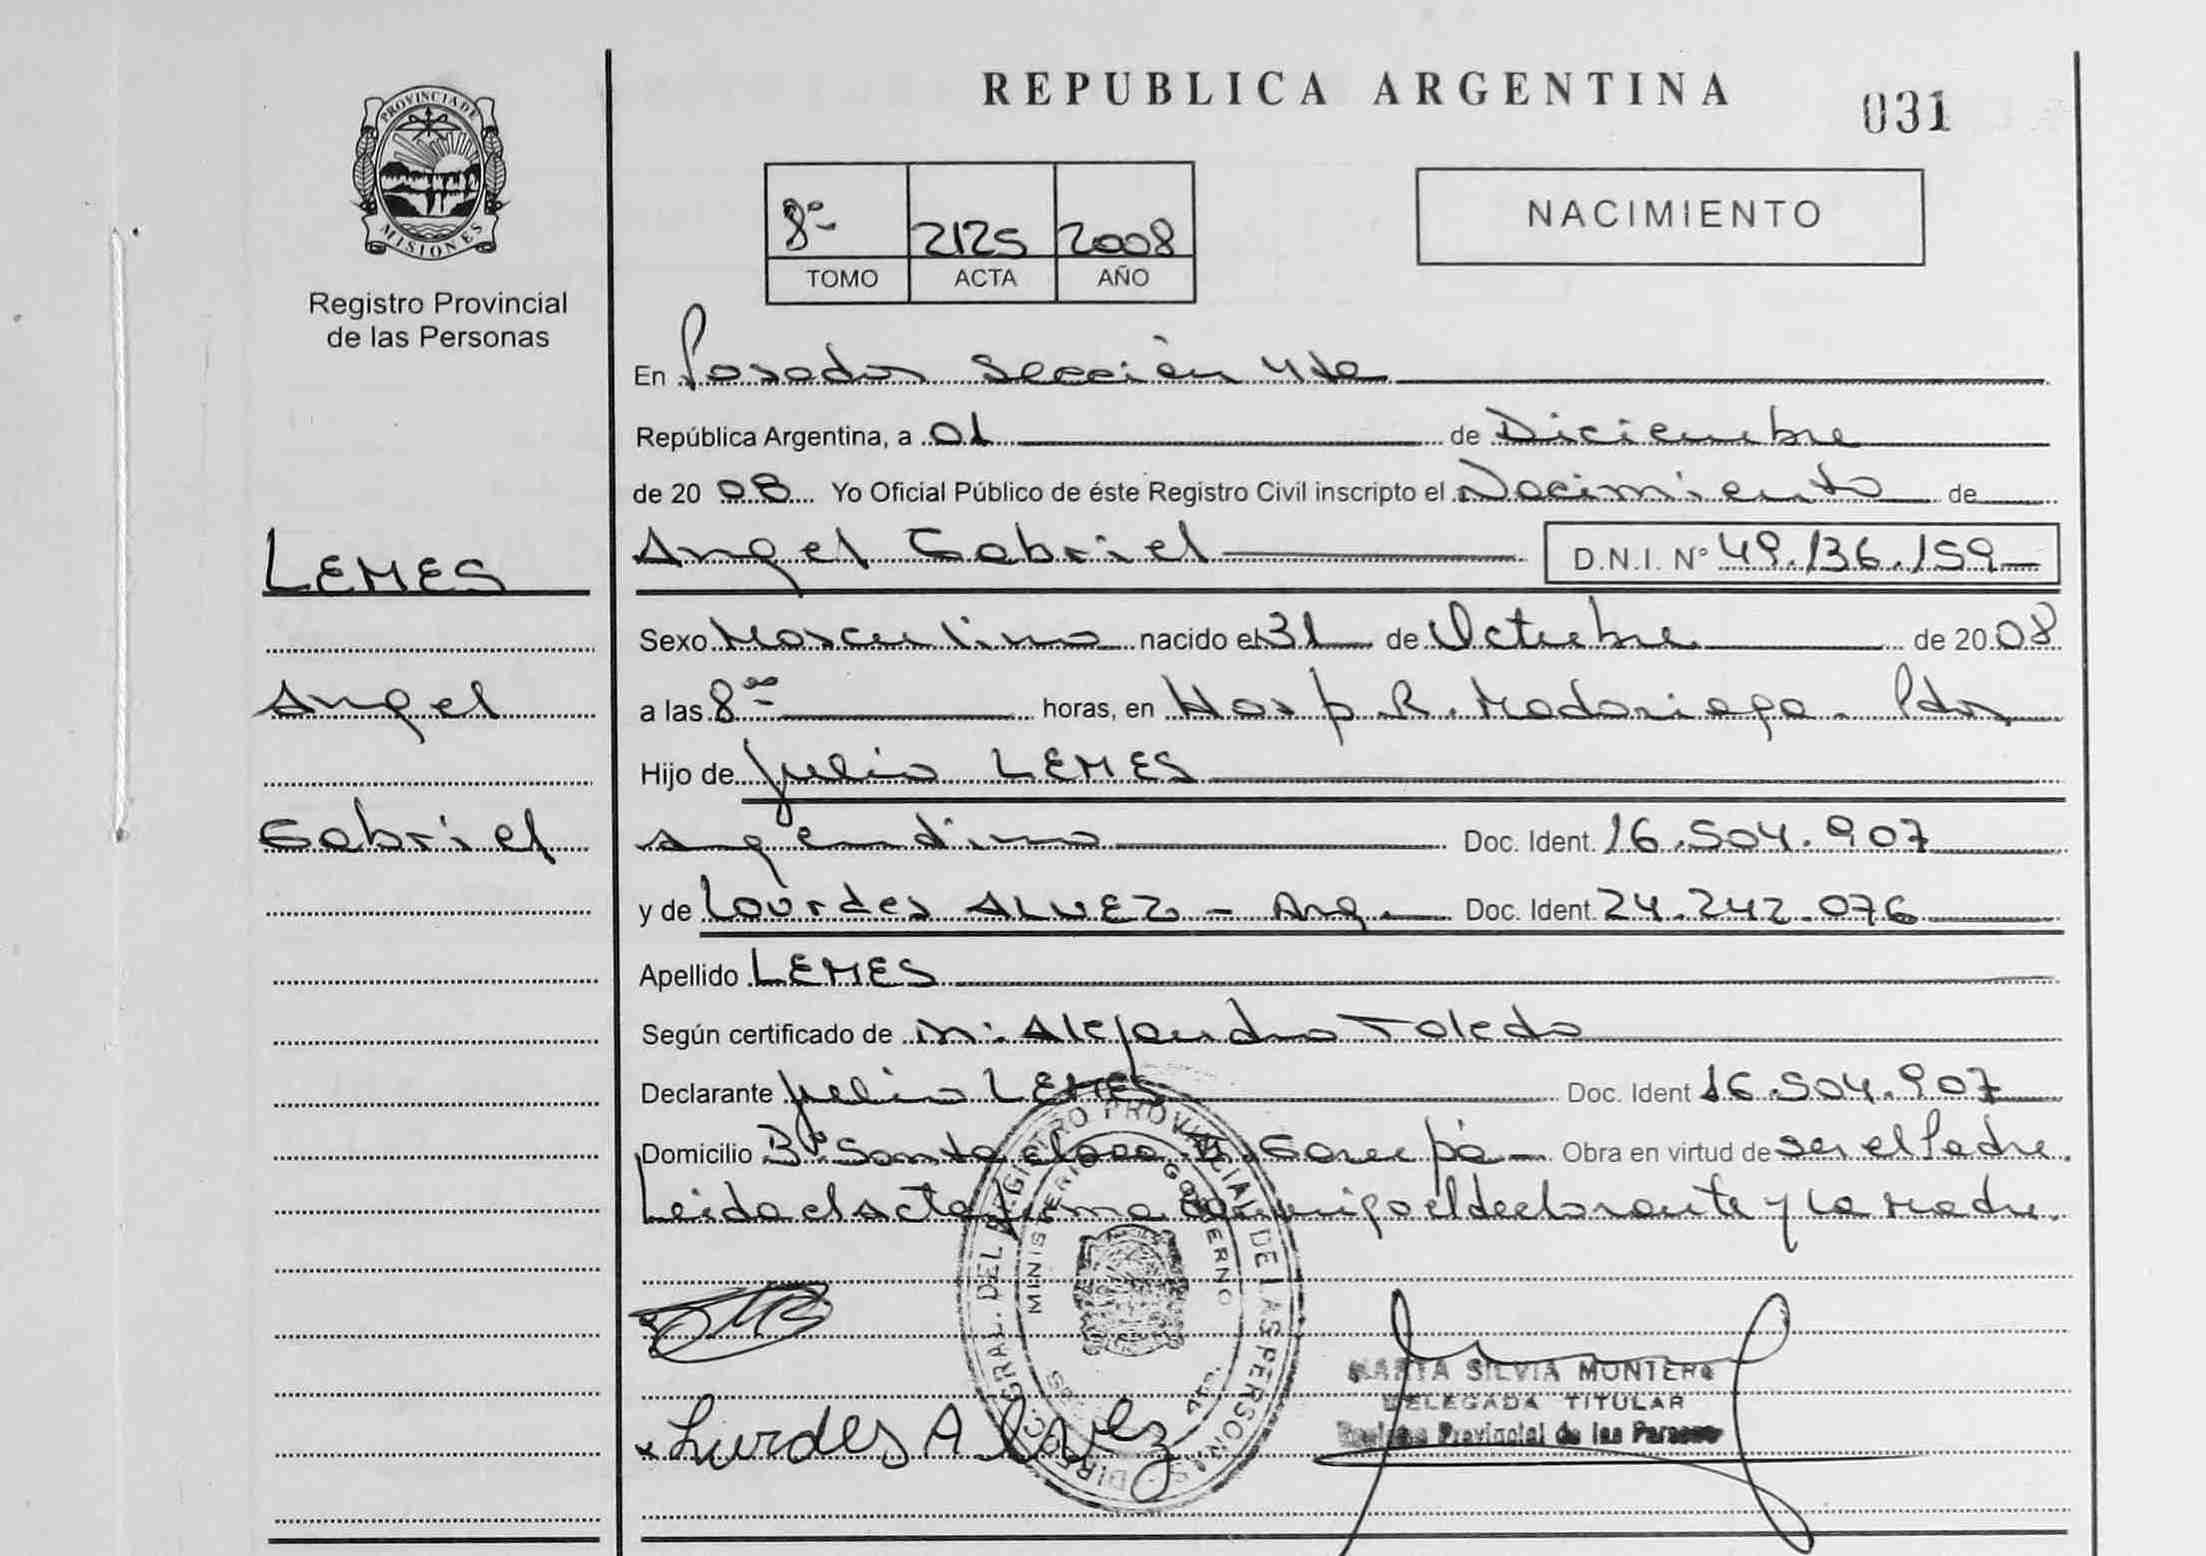 REPUBLICA ARGENTINA
031
PROVINCIA DE
MISIONES
Registro Provincial
de las Personas
8º 2125 2008
TOMO ACTA AÑO
NACIMIENTO
En Posadas Sección 4ta
República Argentina, a 01 de Diciembre
de 20 08 Yo Oficial Público de éste Registro Civil inscripto el Nacimiento de
LEMES
Angel Gabriel D.N.I. Nº 49.136.159
Sexo Masculino nacido el 31 de Octubre de 20 08
Angel
a las 8 00 horas, en Hosp. R. Madariaga - Pdas
Hijo de Julio LEMES
Gabriel
Argentino Doc. Ident. 16.504.907
y de Lourdes ALVEZ - Arg. Doc. Ident. 24.242.076
Apellido LEMES
Según certificado de Alejandro Toledo
Declarante Julio LEMES Doc. Ident 16.504.907
Domicilio Bº Santa Garupá Obra en virtud de ser el Padre.
Leida el Acta firma conmigo el declarante y la Madre.
DIRECC. GRAL. DEL REGISTRO PROVINCIAL DE LAS PERSONAS
MINISTERIO GOBIERNO
MARTA SILVIA MONTERO
DELEGADA TITULAR
Registro Provincial de las Personas
x Lurdes Alvez